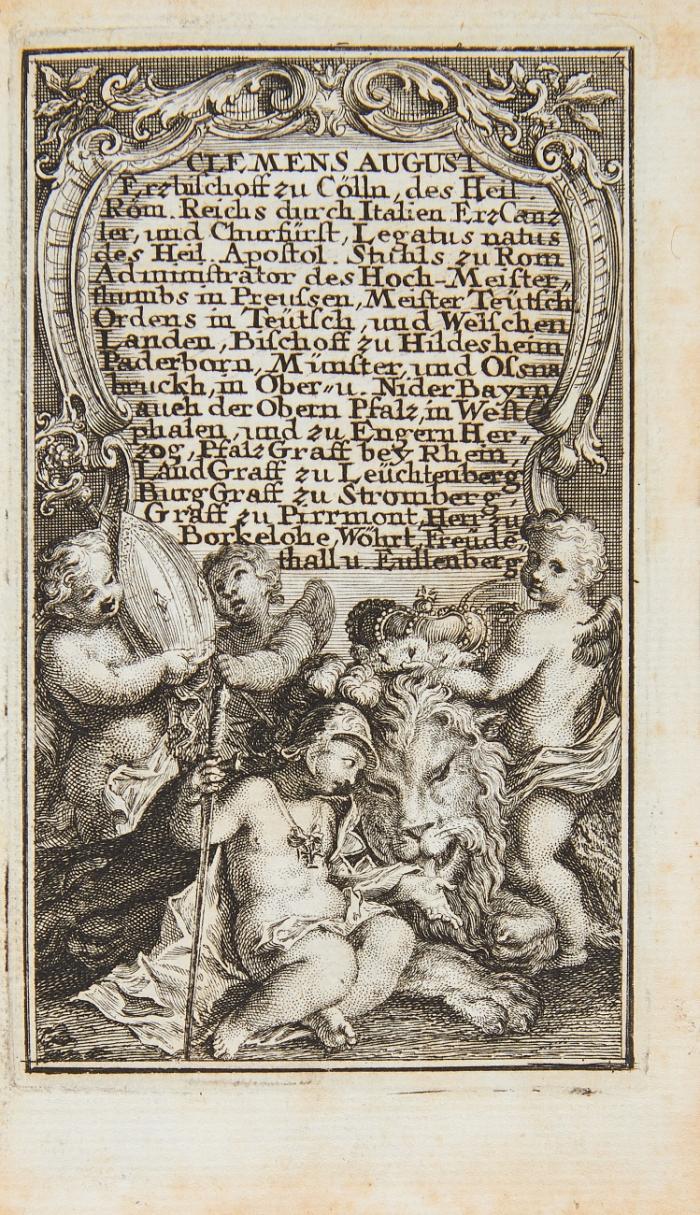 CLEMENS AUGUST
Erzbischoff zu Cölln, des Heil.
Röm. Reichs durch Italien ErzCanz
ler, und Churfürst, Legatus natus
des Heil. Apostol. Sthhls zu Rom
Administrator des Hoch-Meister„
thumbs in Preussen, Meister Teütsch
Ordens in Teütsch, und Welschen
Landen, Bischoff zu Hildesheim
Paderborn, Münster, und Ossna
bruckh, in Ober„ u. Nider Bayrn
auch der Obern Pfalz, in West
phalen, und zu Engern Her„
zog, Pfalz Graff bey Rhein,
Land Graff zu Leüchtenberg
Burg Graff zu Stromberg,
Graff zu Pirrmont, Herr zu
Borkelohe, Wöhrt, Freude„
thall u. Eullenberg